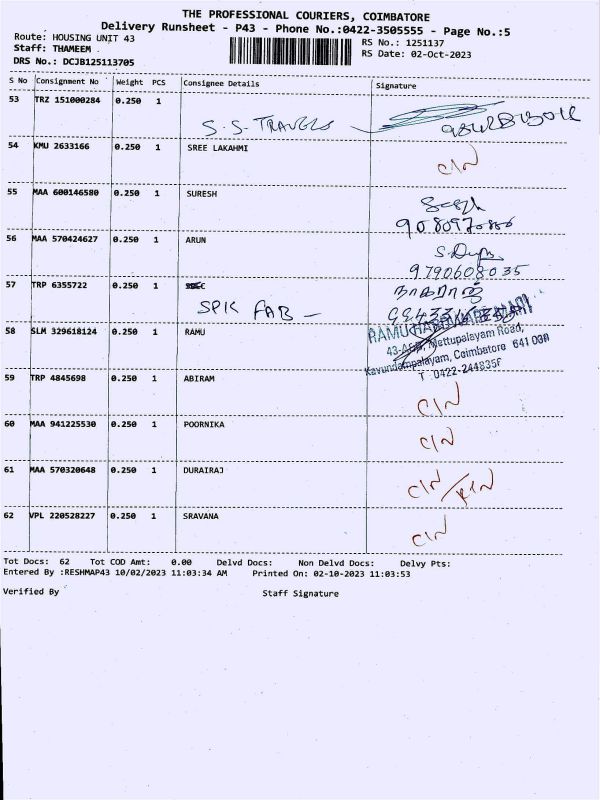 THE PROFESSIONAL COURIERS, COIMBATORE
Delivery Runsheet - P43 - Phone No.:0422-3505555 - Page No.:5
Route: HOUSING UNIT 43
RS No.: 1251137
Staff: THAMEEM
RS Date: 02-Oct-2023
DRS No.: DCJB125113705
S No Consignment No Weight PCS Consignee Details Signature
53 TRZ 151000284 0.250 1
S.S-TRAVELS
54 KMU 2633166 0.250 1 SREE LAKAHMI
C/N
55 MAA 600146580 0.250 1 SURESH
56 MAA 570424627 0.250 1 ARUN
9790608035
57 TRP 6355722 0.250 1
நாகராஜ்
SPK FAB -
58 SLM 329618124 0.250 1 RAMU
Mettupalayam Road,
Kavundampalayam, Coimbatore 641 030
T : 0422-
59 TRP 4845698 0.250 1 ABIRAM
C/N
60 MAA 941225530 0.250 1 POORNIKA
C/N
61 MAA 570320648 0.250 1 DURAIRAJ
C/N / RTN
62 VPL 220528227 0.250 1 SRAVANA
C/N
Tot Docs: 62 Tot COD Amt: 0.00 Delvd Docs: Non Delvd Docs: Delvy Pts:
Entered By :RESHMAP43 10/02/2023 11:03:34 AM Printed On: 02-10-2023 11:03:53
Verified By Staff Signature